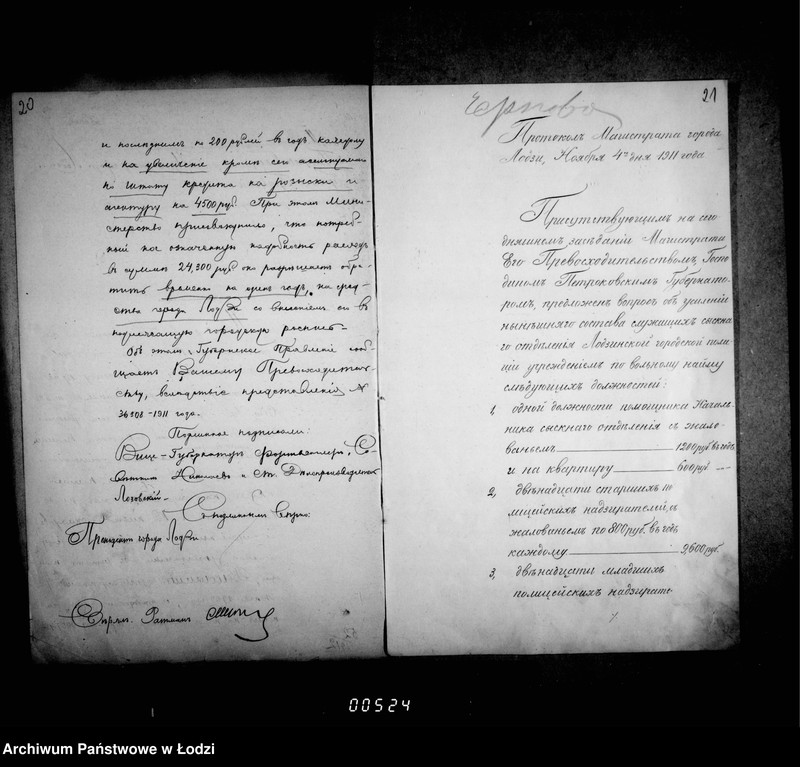 20
и последнимъ по 200 рублей въ годъ каждому
и на увеличеніе кромѣ сего ассигнуемаго
по штату кредита на розыски и
агентуру на 4500 руб. При этомъ Мини-
стерство присовокупило, что потреб-
ный на означенную надобность расходъ
въ суммѣ 24,300 руб. оно разрѣшаетъ обра-
тить временно на одинъ годъ, на сред-
ства города Лодзи со внесеніемъ его въ
подлежащую городскую роспись.
Объ этомъ Губернское Правленіе сооб-
щаетъ Вашему Превосходитель-
ству, вслѣдствіе представленія №
1911 года.
Подлинное подписали:
Вице-Губернаторъ Со-
вѣтникъ и Ст. Дѣлопроизводитель
Лозовскій.
Съ подлиннымъ вѣрно:
Президентъ города Лодзи
Ратманъ
21
Черново
Протоколъ Магистрата города
Лодзи, Ноября 4го дня 1911 года
Присутствующимъ на сего-
дняшнемъ засѣданіи Магистрата
Его Превосходительствомъ, Госпо-
диномъ Петроковскимъ Губернато-
ромъ, предложенъ вопросъ объ усиленіи
нынѣшняго состава служащихъ сыскна-
го отдѣленія Лодзинской городской поли-
ціи учрежденіемъ по вольному найму
слѣдующихъ должностей:
1, одной должности помощника Началь-
ника сыскнаго отдѣленія съ жало-
ваньемъ 1200 руб. въ годъ
и на квартиру 600 руб. —
2, двѣнадцати старшихъ по
лицейскихъ надзирателей съ
жалованьемъ по 800 руб. въ годъ
каждому 9,600 руб.
3, двѣнадцати младшихъ
полицейскихъ надзирате-
00524
Archiwum Państwowe w Łodzi